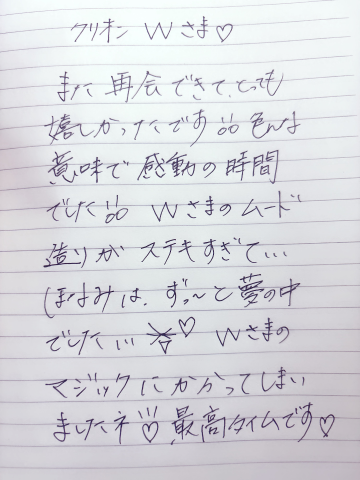 クリオン Wさま♡
また再会できて、とっても
嬉しかったです!!色んな
意味で感動の時間
でした!!Wさまのムード
造りがステキすぎて…
ほなみは、ずっ〜と夢の中
でした…♡Wさまの
マジックにかかってしまい
ましたネ♡最高タイムです♡